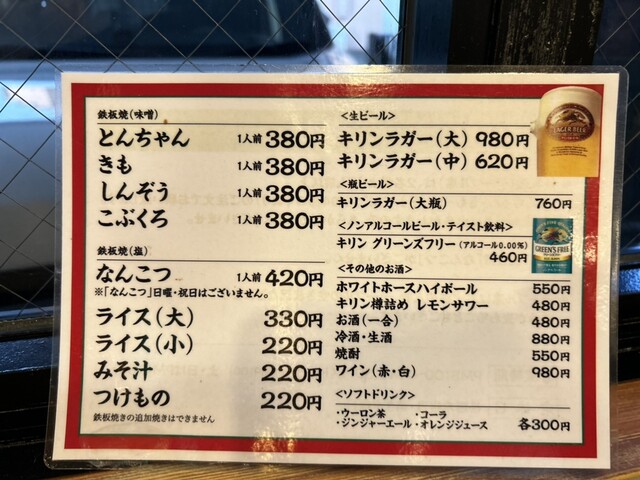 鉄板焼(味噌)
とんちゃん 1人前 380円
きも 1人前 380円
しんぞう 1人前 380円
こぶくろ 1人前 380円
鉄板焼(塩)
なんこつ 1人前 420円
※「なんこつ」日曜・祝日はございません。
ライス(大) 330円
ライス(小) 220円
みそ汁 220円
つけもの 220円
鉄板焼きの追加焼きはできません
<生ビール>
キリンラガー(大) 980円
キリンラガー(中) 620円
LAGER BEER
<瓶ビール>
キリンラガー(大瓶) 760円
<ノンアルコールビール・テイスト飲料>
キリン グリーンズフリー(アルコール0.00%)
460円
GREEN'S FREE
<その他のお酒>
ホワイトホースハイボール 550円
キリン樽詰め レモンサワー 480円
お酒(一合) 480円
冷酒・生酒 880円
焼酎 550円
ワイン(赤・白) 980円
<ソフトドリンク>
・ウーロン茶 ・コーラ
・ジンジャーエール ・オレンジジュース 各300円